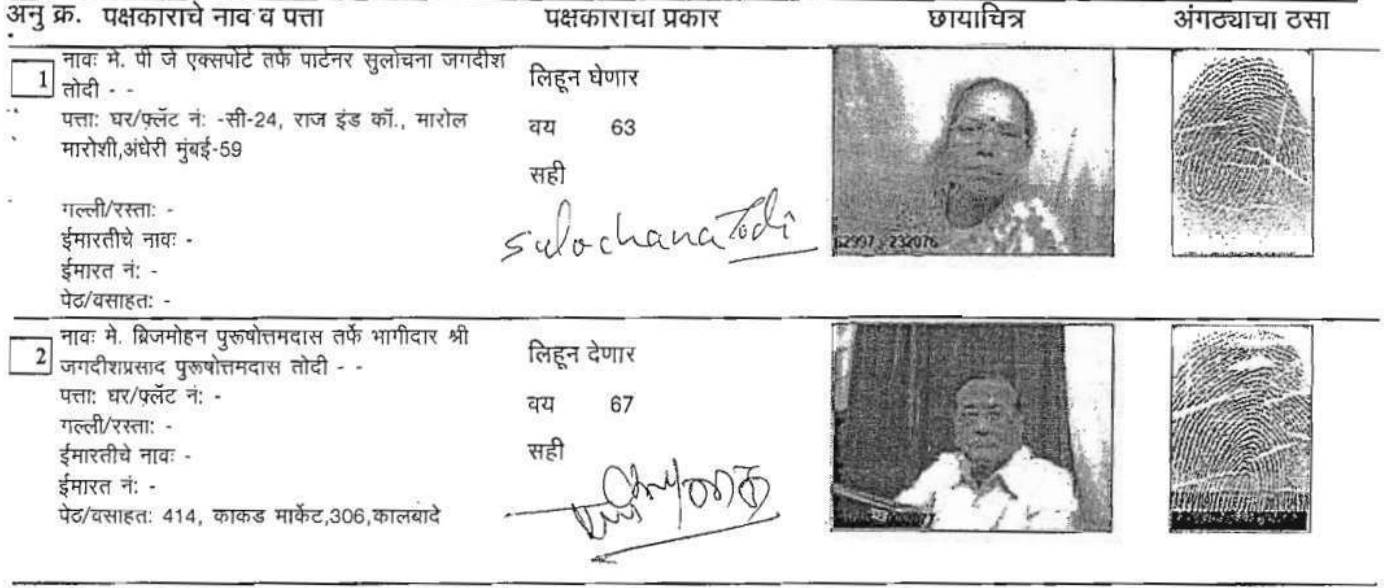 अनु क्र. पक्षकाराचे नाव व पत्ता पक्षकाराचा प्रकार छायाचित्र अंगठ्याचा ठसा
1 नावः मे. पी जे एक्सपोर्ट तर्फे पार्टनर सुलोचना जगदीश
तोदी - -
लिहून घेणार
पत्ताः घर/फ्लॅट नंः -सी-24, राज इंड कॉ., मारोल
मारोशी,अंधेरी मुंबई-59
वय 63
सही
गल्ली/रस्ताः -
ईमारतीचे नावः -
ईमारत नंः -
पेठ/वसाहतः -
Sulochana Todi
62997 - 232076
2 नावः मे. ब्रिजमोहन पुरूषोत्तमदास तर्फे भागीदार श्री
जगदीशप्रसाद पुरूषोत्तमदास तोदी - -
लिहून देणार
पत्ताः घर/फ्लॅट नंः -
वय 67
गल्ली/रस्ताः -
ईमारतीचे नावः -
सही
ईमारत नंः -
पेठ/वसाहतः 414, काकड मार्केट,306,कालबादे